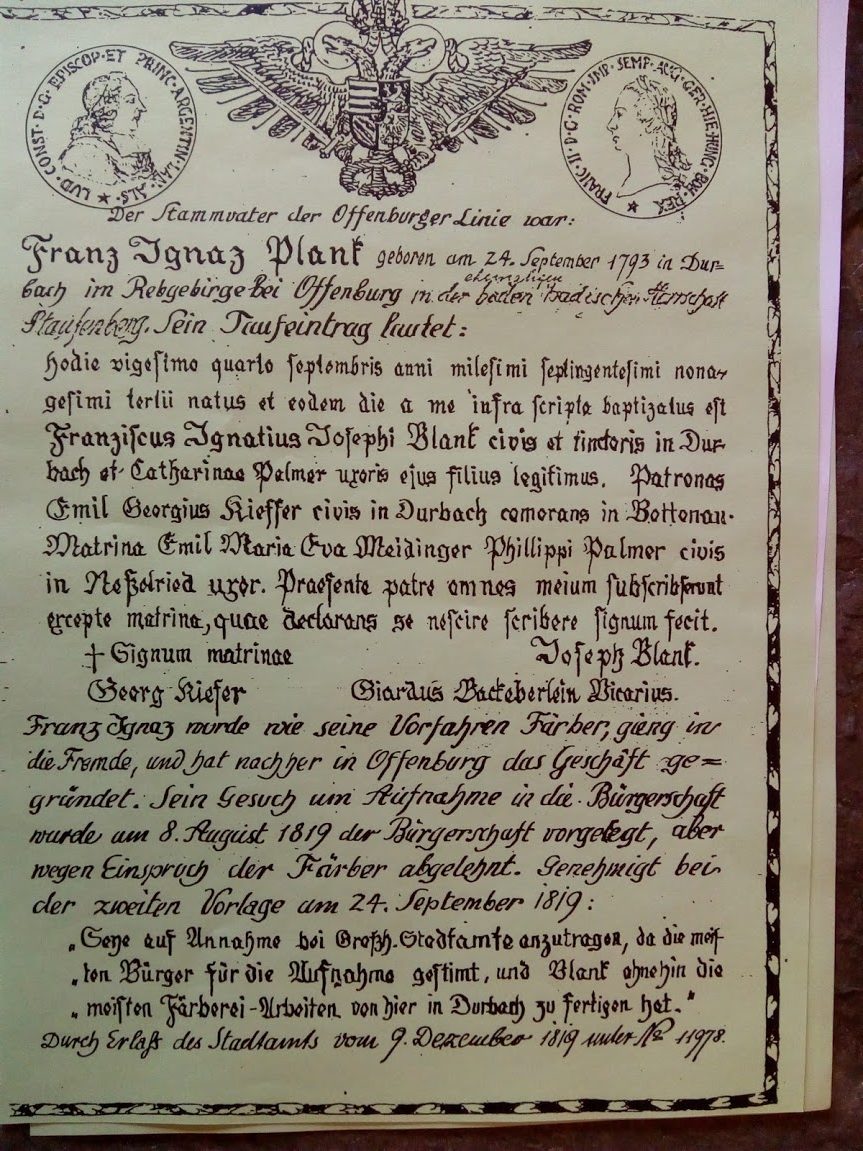 LUD · CONST · D · G · EPISCOP · ET PRINC · ARGENTIN · LAN · ALS ·
FRANC · II · D · G · ROM · IMP · SEMP · AUG · GER · HIE · HUNG · BOH · REX
Der Stammvater der Offenburger Linie war:
Franz Ignaz Plank geboren am 24. September 1793 in Dur=
bach im Rebgebirge bei Offenburg in der baden badischen Herrschaft
ehemaligen
Staufenberg. Sein Taufeintrag lautet:
Hodie vigesimo quarto septembris anni milesimi septingentesimi nona-
gesimi tertii natus et eodem die a me infra scripto baptizatus est
Franziscus Ignatius Josephi Blank civis et tinctoris in Dur-
bach et Catharinae Palmer uxoris ejus filius legitimus. Patronas
Emil Georgius Kieffer civis in Durbach comorans in Bottenau.
Matrina Emil Maria Eva Meidinger Phillippi Palmer civis
in Neßelried uxor. Praesente patre omnes meium subscribserunt
excepte matrina, quae declarans se nescire scribere signum fecit.
† Signum matrinae Joseph Blank.
Georg Kiefer Giardus Backeberlein Vicarius.
Franz Ignaz wurde wie seine Vorfahren Färber, gieng in
die Fremde, und hat nachher in Offenburg das Geschäft ge=
gründet. Sein Gesuch um Aufnahme in die Bürgerschaft
wurde am 8. August 1819 der Bürgerschaft vorgelegt, aber
wegen Einspruch der Färber abgelehnt. Genehmigt bei
der zweiten Vorlage am 24. September 1819:
„Seye auf Annahme bei Großh. Stadtamte anzutragen, da die meis-
„ten Bürger für die Aufnahme gestimt, und Blank ohnehin die
„meisten Färberei-Arbeiten von hier in Durbach zu fertigen hat."
Durch Erlaß des Stadtamts vom 9. Dezember 1819 unter No 11978.